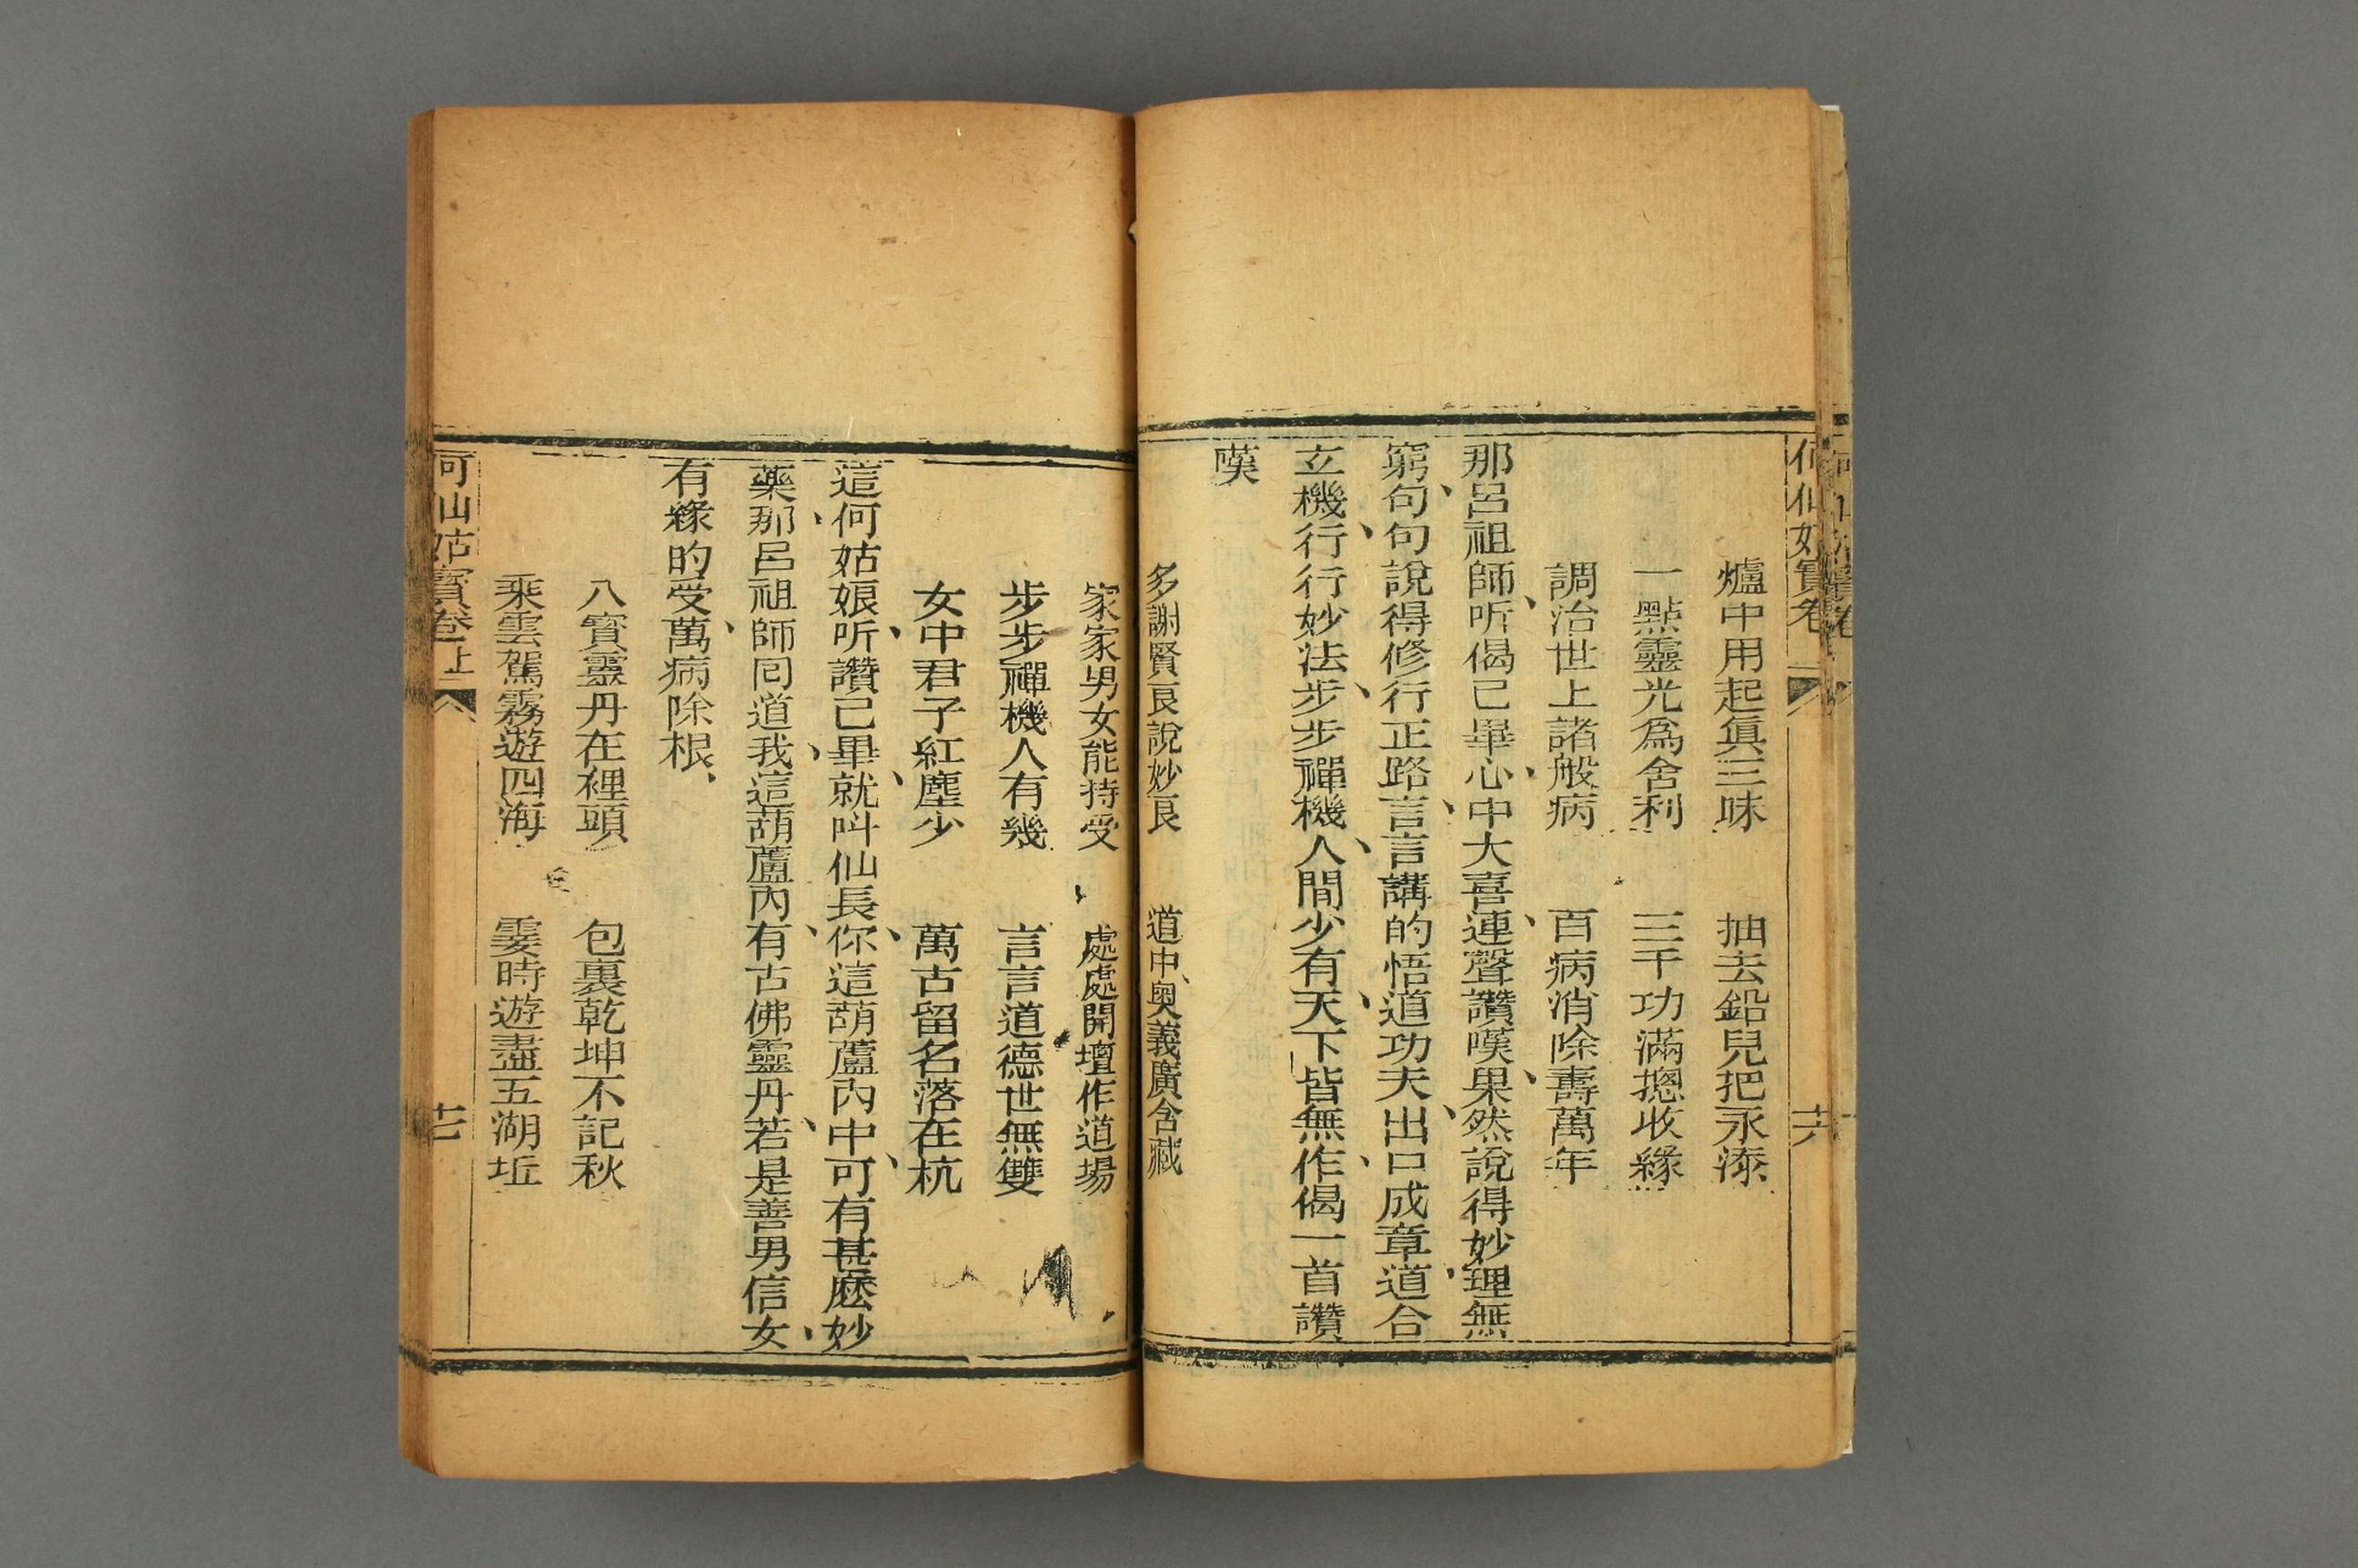 何仙姑寶卷
十六
爐中用起眞三昧 抽去鉛兒把永添
一點靈光爲舍利 三千功滿摠收緣
調治世上諸般病 百病消除壽萬年
那呂祖師、听偈已畢、心中大喜、連聲讚嘆、果然說得妙理無
窮、句句說得修行正路、言言講的悟道功夫、出口成章、道合
立機、行行妙法、步步禪機、人間少有、天下皆無、作偈一首讚
嘆
多謝賢良說妙良 道中、奧義廣含藏
家家男女能持受 處處開壇作道場
步步禪機人有幾 言言道德世無雙
女中君子紅塵少 萬古留名落在杭
這何姑娘、听讚己畢、就呌仙長、你這葫蘆內中、可有甚麽妙
藥、那呂祖師囘道、我這葫蘆內、有古佛靈丹、若是善男信女、
有緣的受、萬病除根、
八寶靈丹在裡頭 包裏乾坤不記秋
乘雲駕霧遊四海 霎時遊盡五湖坵
何仙姑寶卷上
十七